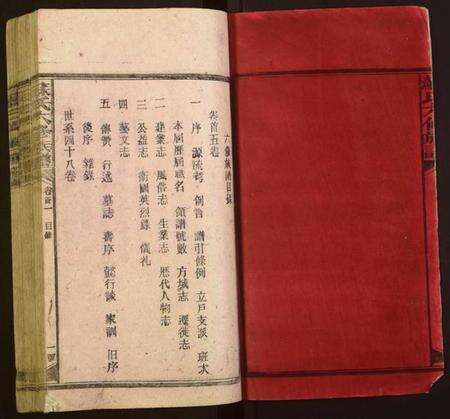 六修族譜目錄
卷首五卷
一 序 源流考 例言 譜引條例 立戶支派 班次
本屆歷屆職名 領譜號數 方域志 遷徙志
二 建業志 風俗志 生業志 歷代人物志
三 公益志 衛國英烈錄 儀礼
四 藝文志
五 傳贊 行述 墓志 壽序 懿行錄 家訓 旧序
後序 雜錄
世系四十八卷
氏六修族譜 卷首一 目錄